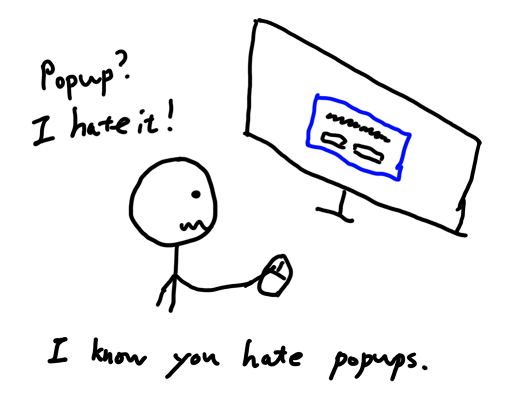 Popup?
I hate it!
I know you hate popups.